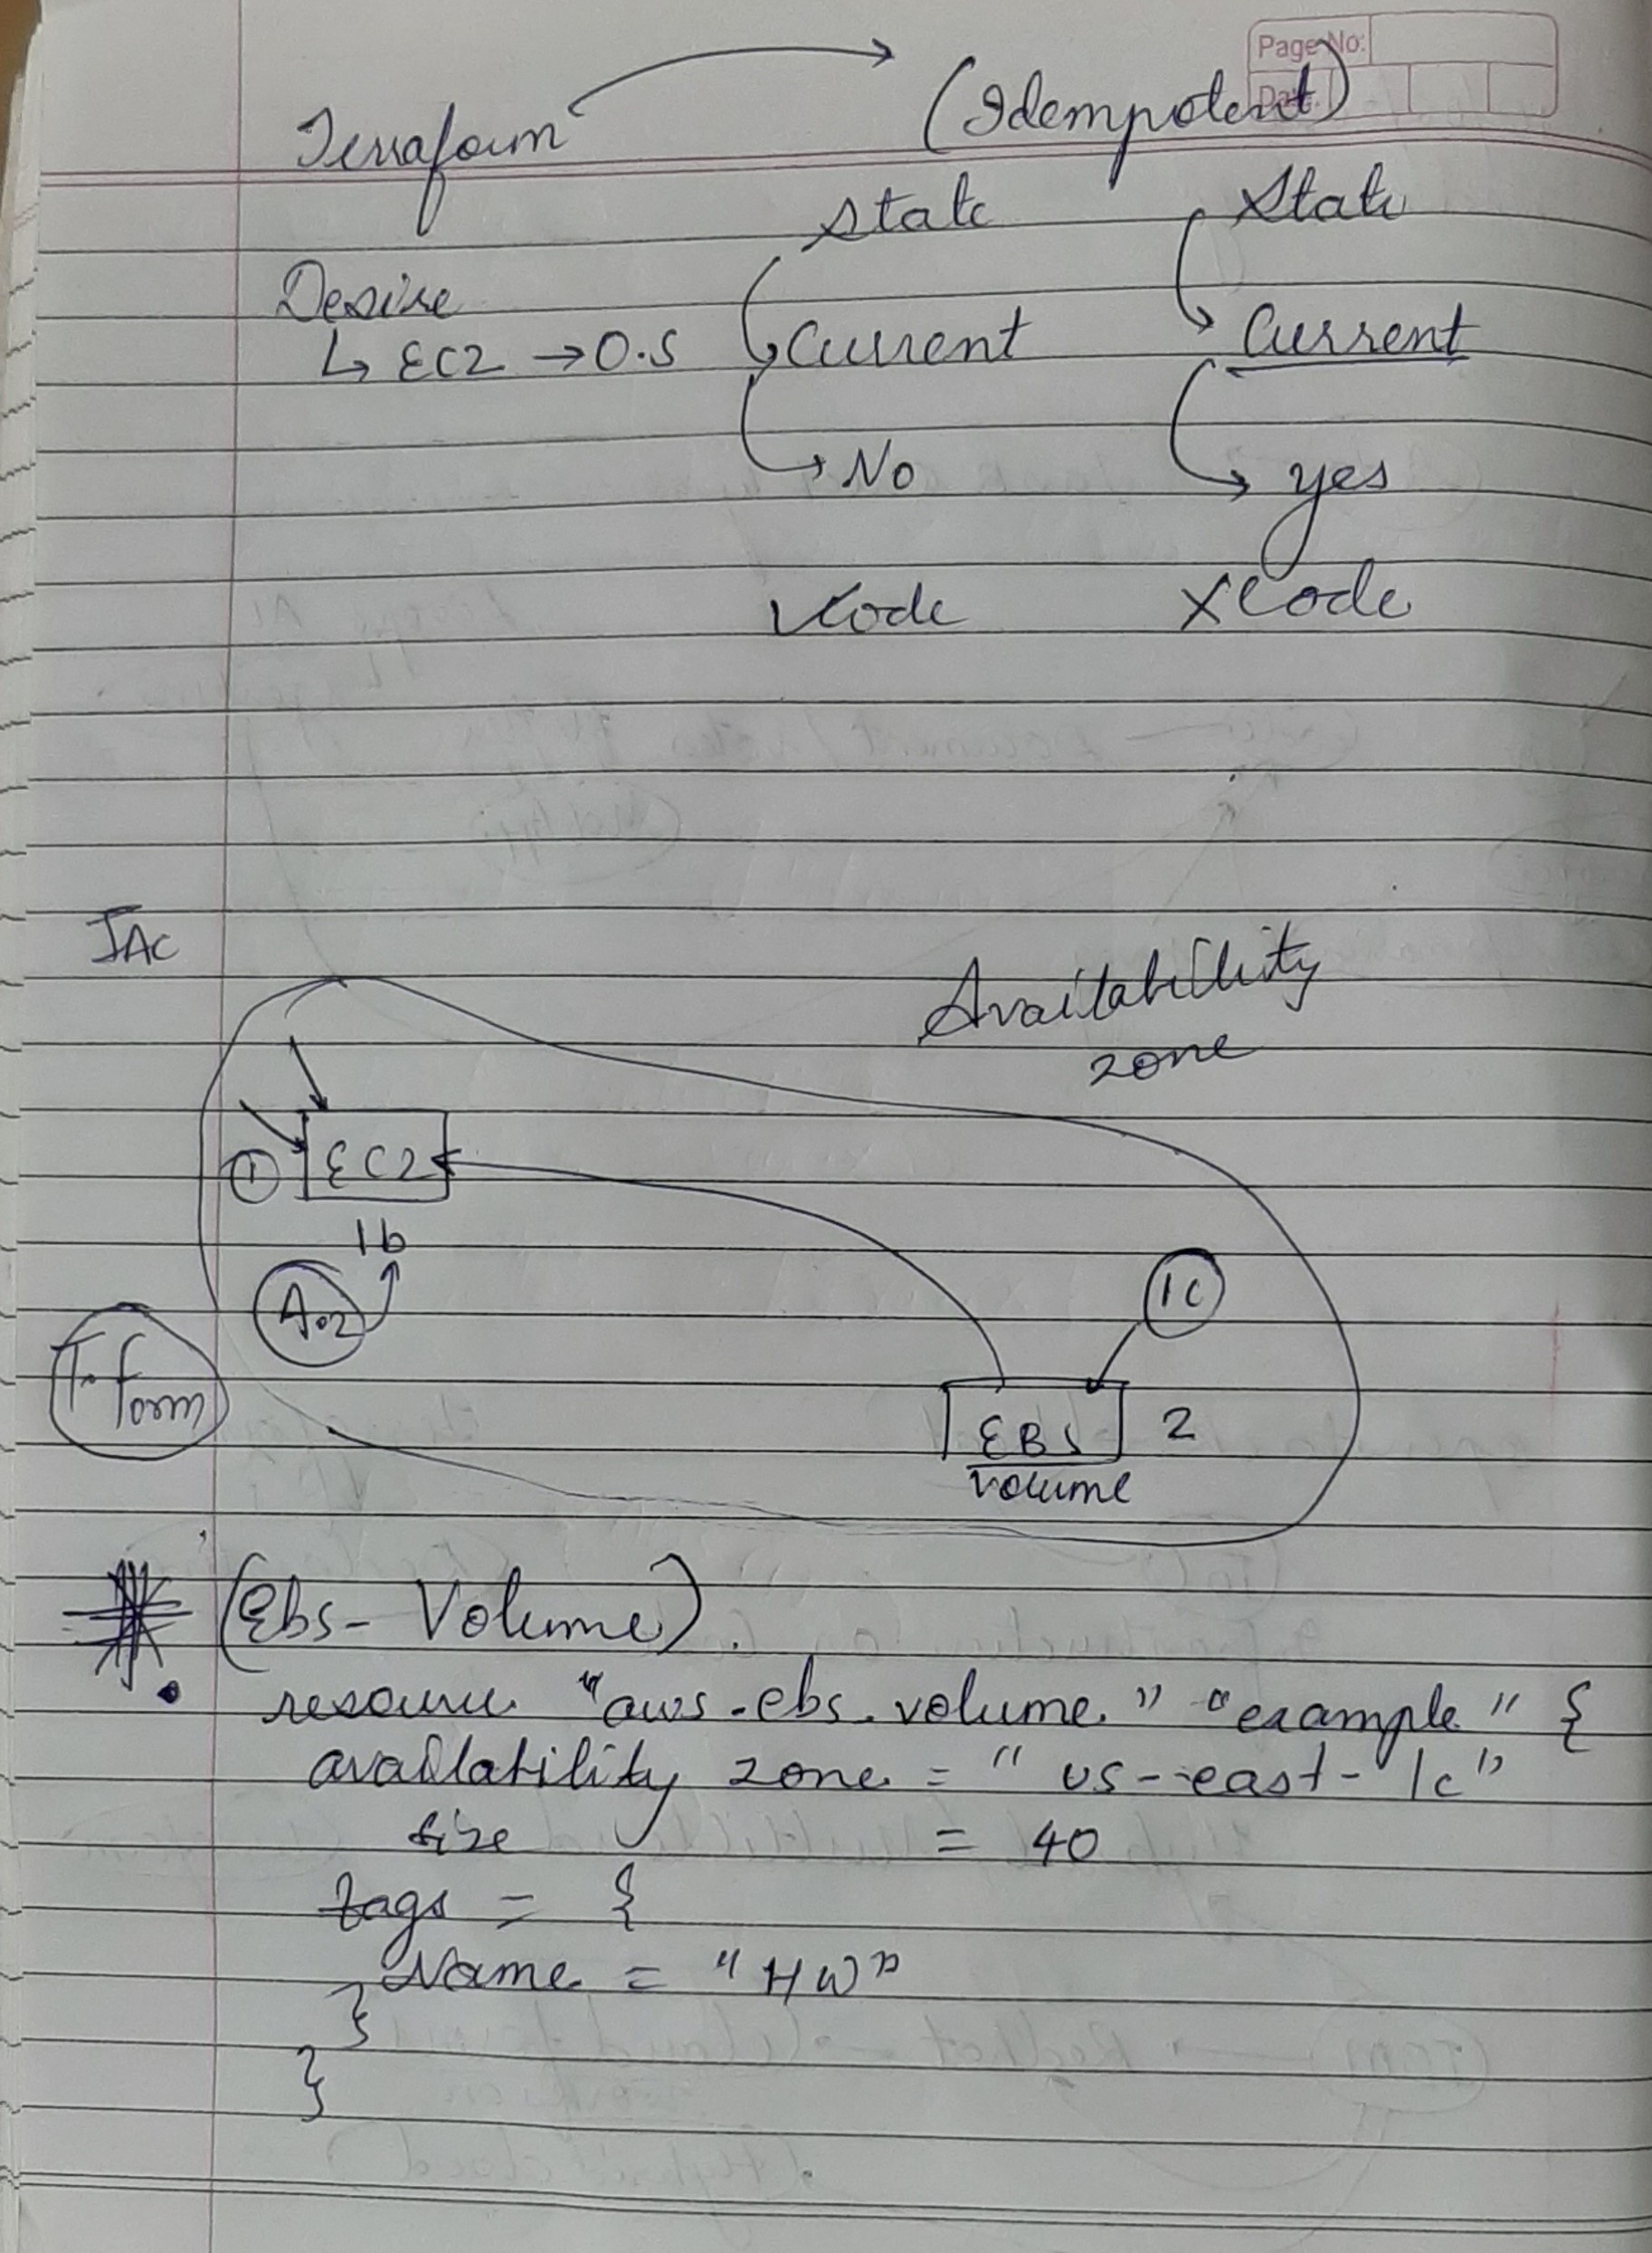 Page No:
Date:
Terraform → (Idempotent)
State State
Desire
↳ EC2 → O.S Current Current
No yes
✓Code XCode
IAC
Availabillity
zone
① EC2
1b
A.z
1c
T-form
EBS 2
volume
(Ebs- Volume).
resource "aws-ebs-volume" "example" {
availability zone = "us-east-1c"
size = 40
tags = {
Name = "HW"
}
}